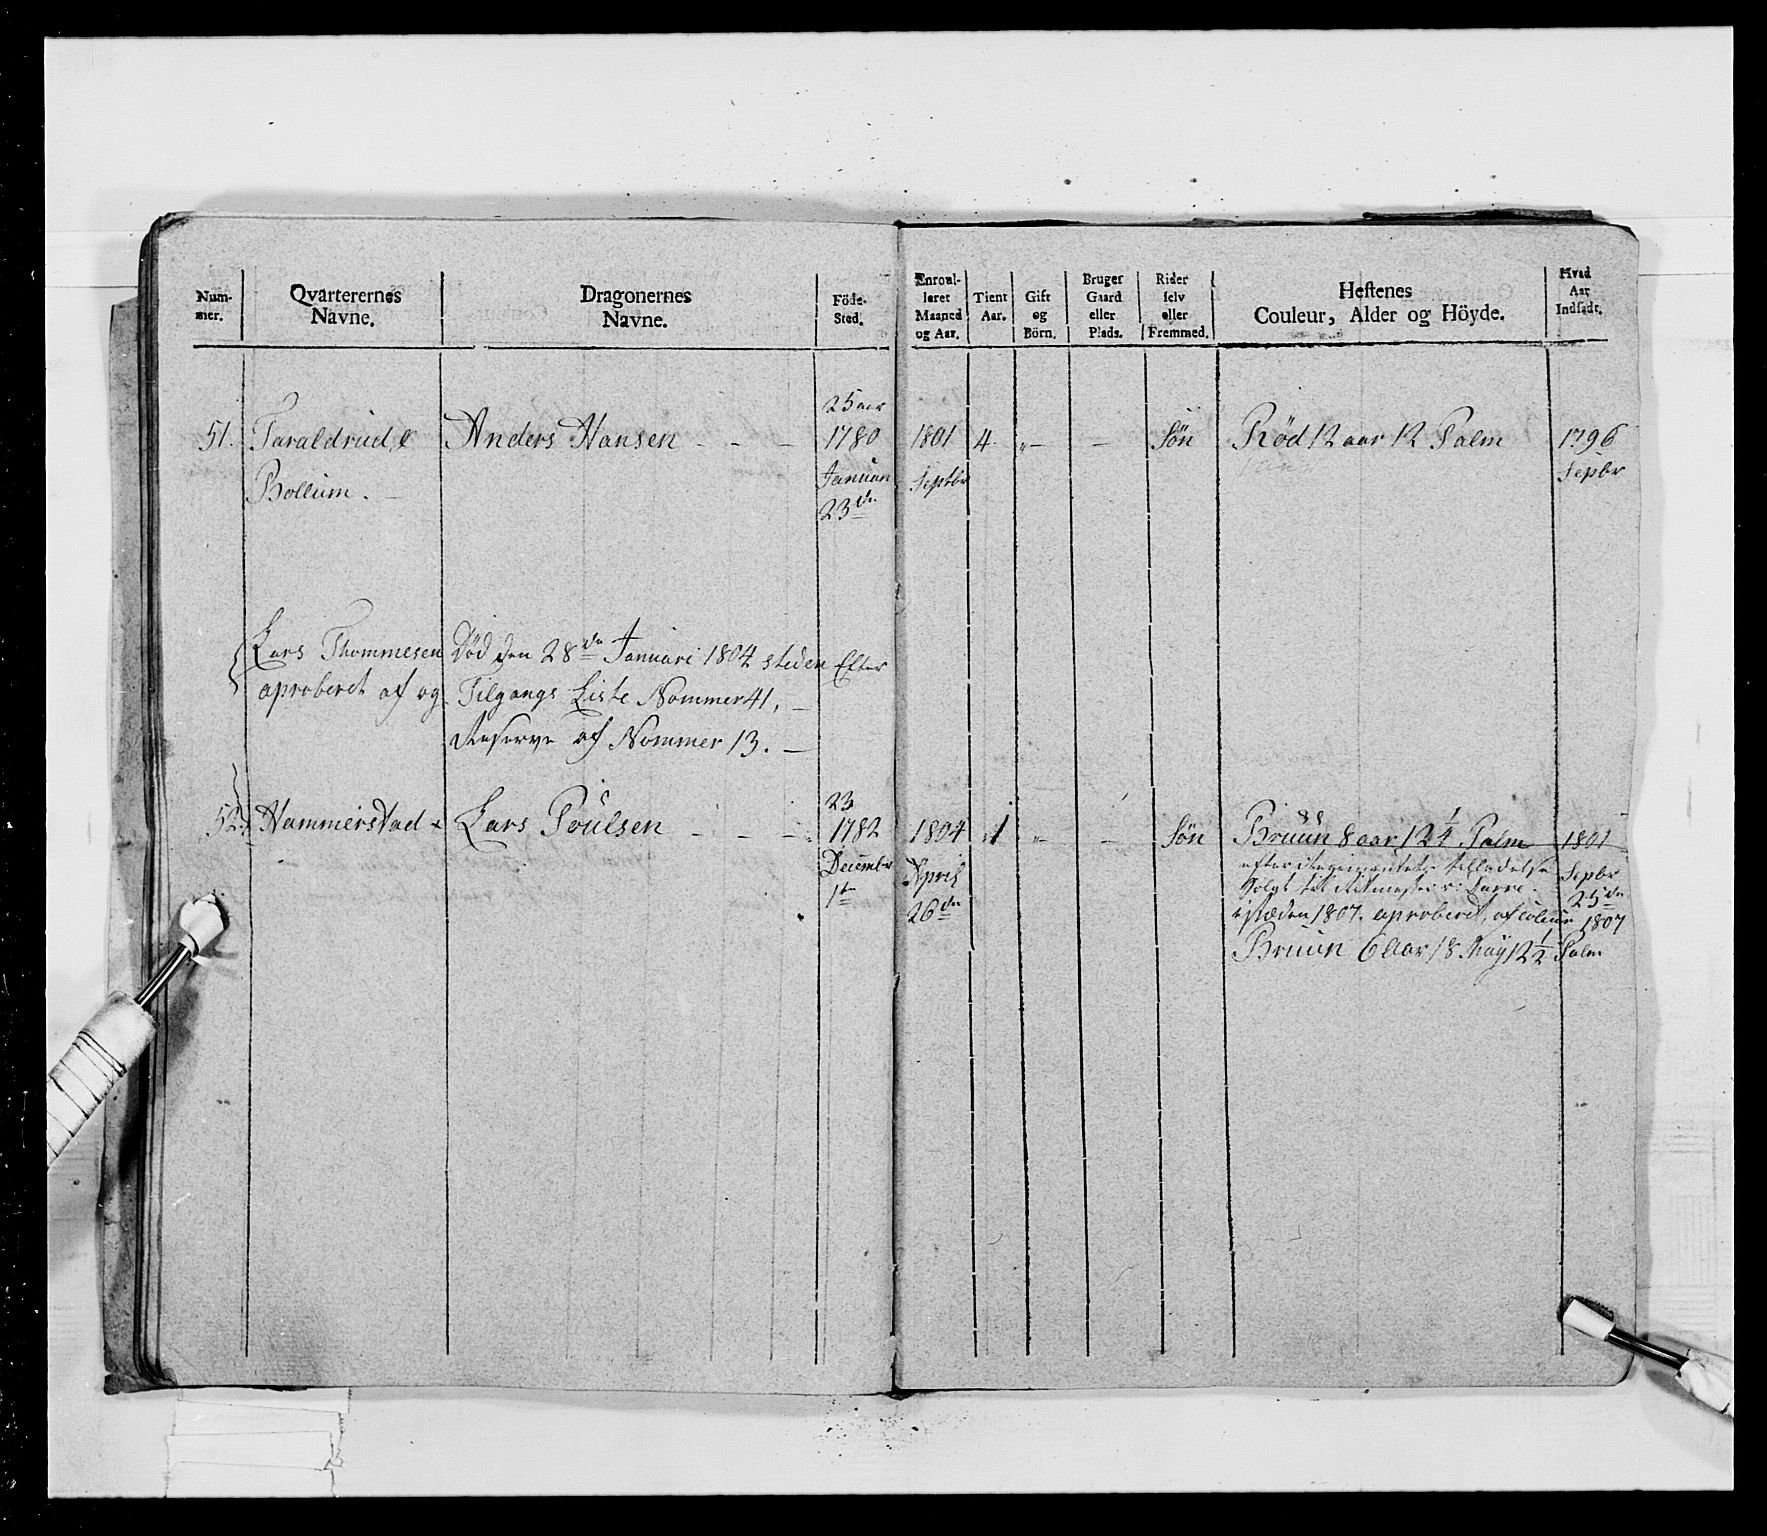 Num-
mer.
Qvarterernes
Navne.
Dragonernes
Navne.
Föde-
Sted.
Enroul-
leret
Maaned
og Aar.
Tient
Aar.
Gift
og
Börn.
Bruger
Gaard
eller
Plads.
Rider
selv
eller
Fremmed.
Hestenes
Couleur, Alder og Höyde.
Hvad
Aar
Indsadt.
25 aar
51. Taraldrud & Anders Hansen - - - 1780 1801 4. „ - - Søn Rød 12 aar 12 Palm 1796
Bollum. - Januari Septbr Sepbr
23de
Lars Thommesen Død den 28de Januari 1804 steden Efter
aproberet af og Tilgangs Liste Nommer 41, -
Reserve af Nommer 13. -
23
52. Hammerstad Lars Poulsen - - - 1782 1804 1 „ - - Søn Bruun 8 aar 12 1/4 Palm 1801
Decembr April efter Regimentets tilladelse Sepbr
1te 26de Solgt til Ritmester 25de
istæden 1807. aproberet, af 1807
Bruun 6 Aar 18 May 12 1/2 Palm